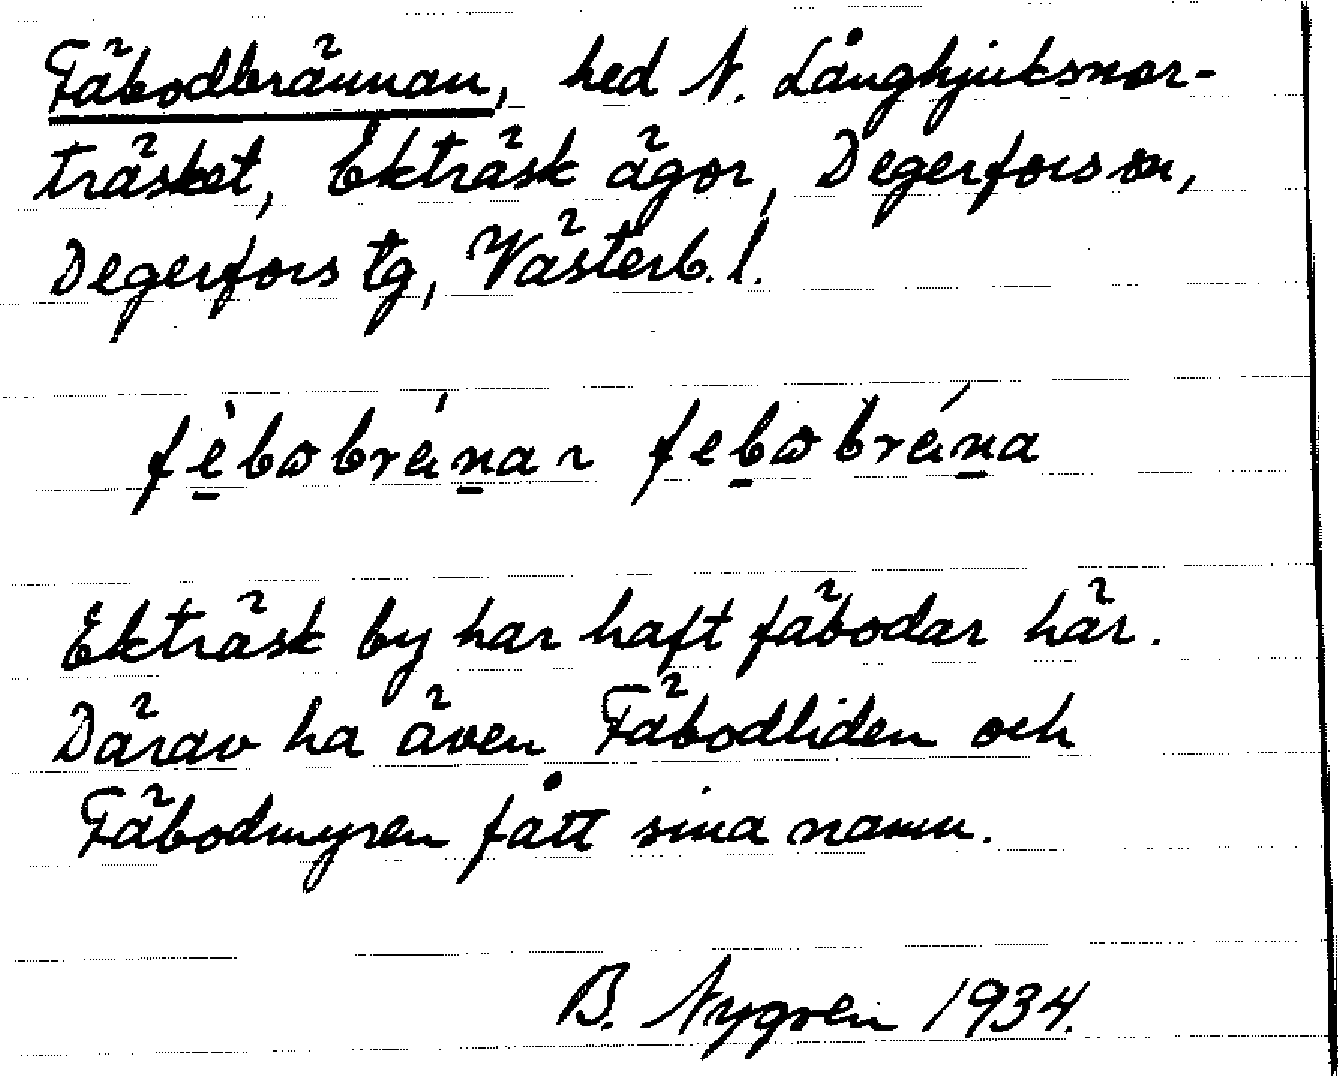 Fäbodbrännan, hed N. Långhjuksmor-
träsket, Ekträsk ägor, Degerfors sn,
Degerfors tg, Västerb. l.
Ekträsk by har haft fäbodar här.
Därav ha även Fäbodliden och
Fäbodmyren fått sina namn.
B. Nygren 1934.